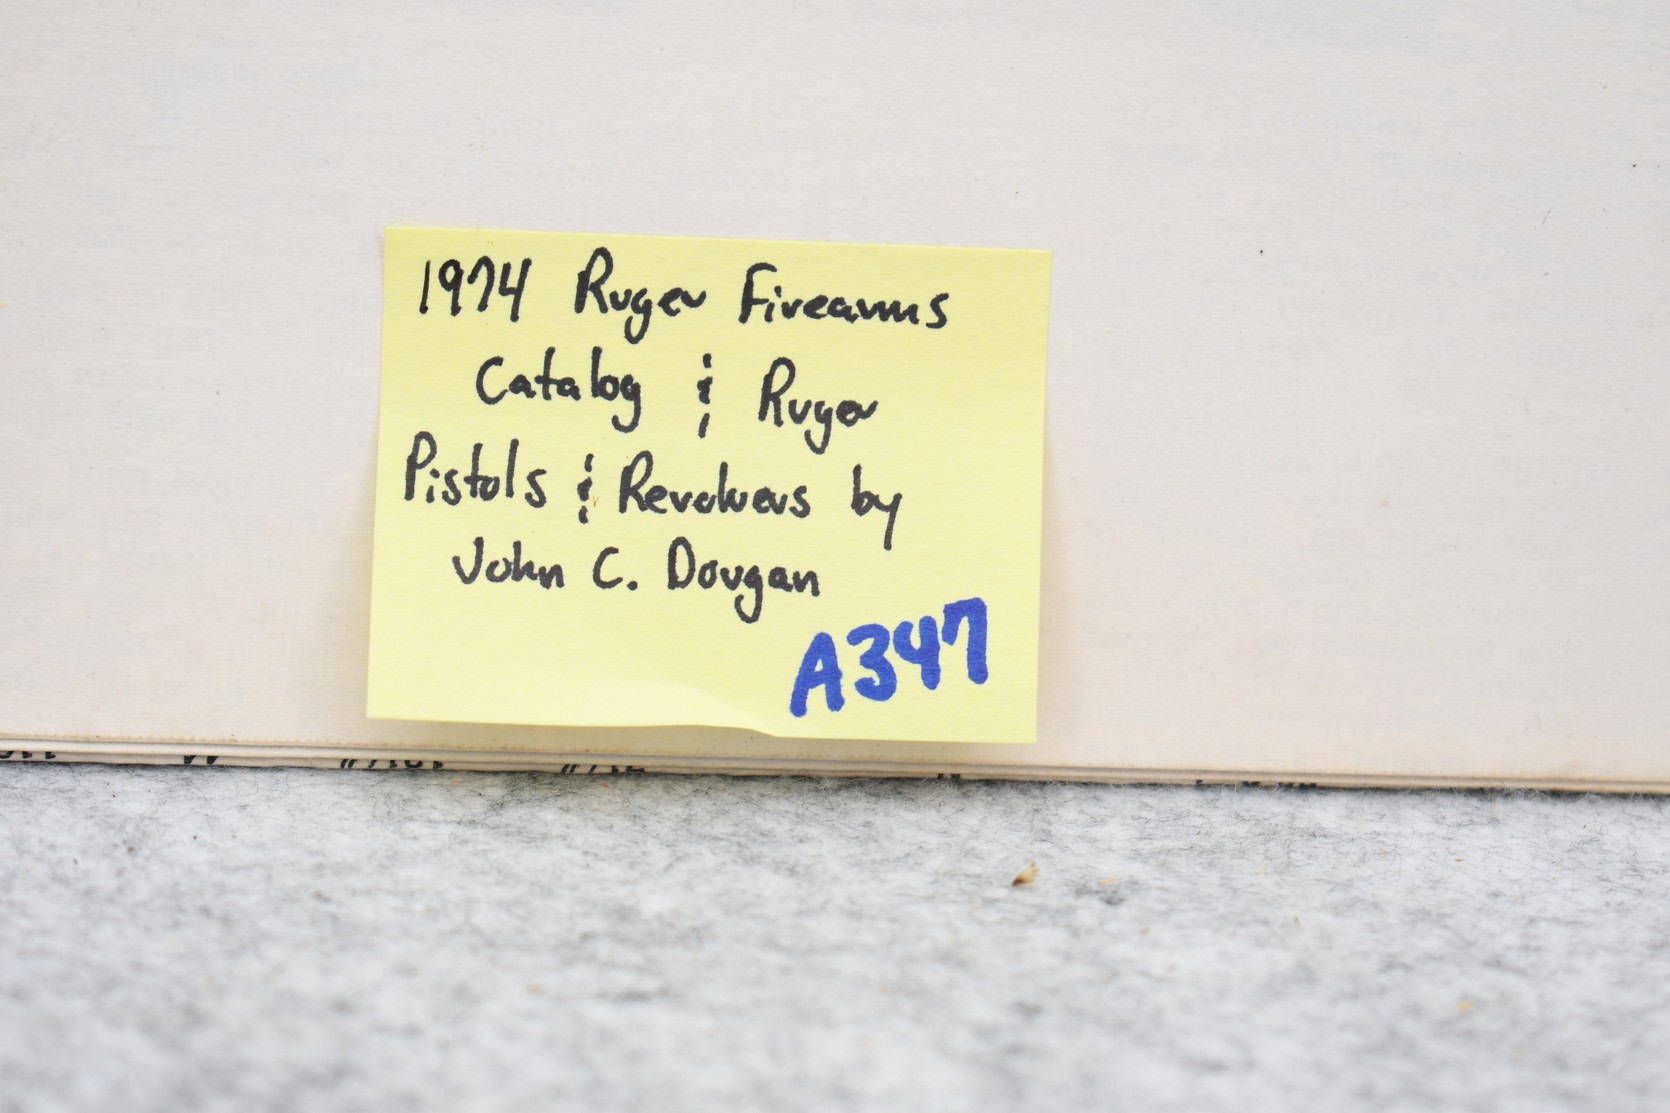 1974 Ruger Firearms
Catalog & Ruger
Pistols & Revolvers by
John C. Dougan
A347